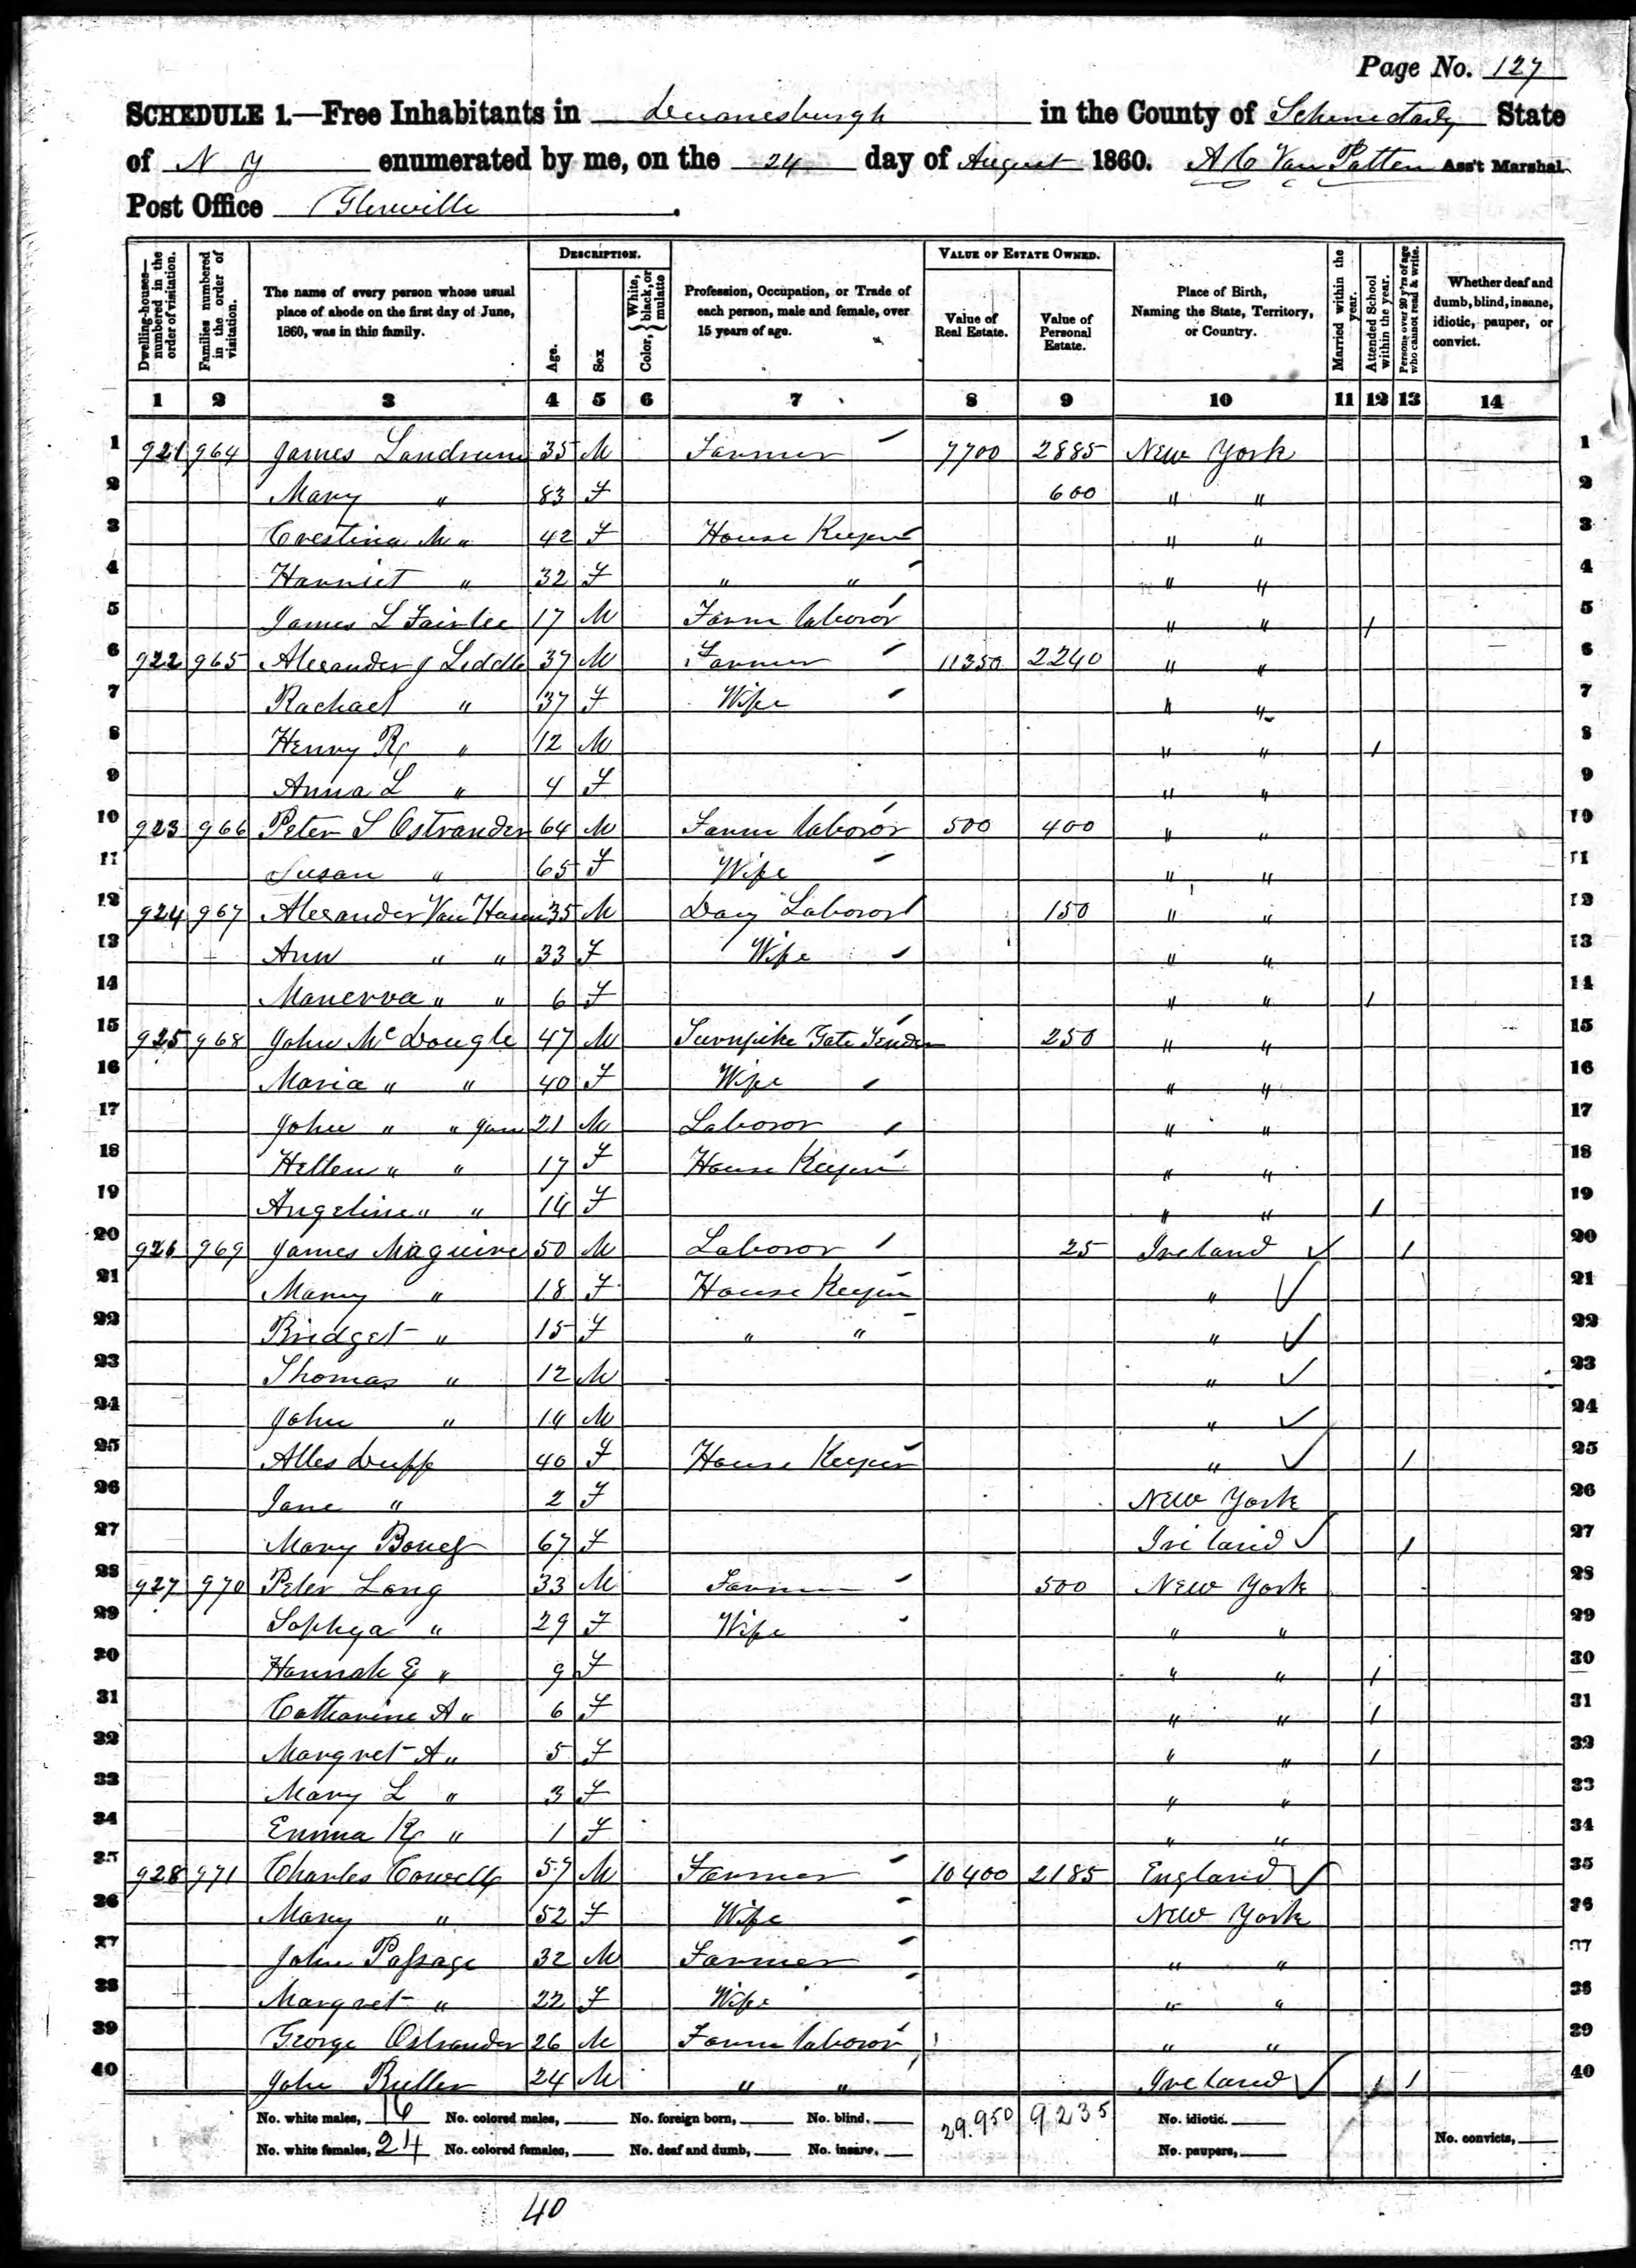 Page No. 127
SCHEDULE 1.—Free Inhabitants in Duanesburgh in the County of Schenectady State
of N Y enumerated by me, on the 24 day of August 1860. A C Van Patten Ass't Marshal.
Post Office Glenville.
Dwelling-houses—numbered in the order of visitation.
Families numbered in the order of visitation.
The name of every person whose usual place of abode on the first day of June, 1860, was in this family.
DESCRIPTION.
Age.
Sex
Color, { White, black, or mulatto
Profession, Occupation, or Trade of each person, male and female, over 15 years of age.
VALUE OF ESTATE OWNED.
Value of Real Estate.
Value of Personal Estate.
Place of Birth, Naming the State, Territory, or Country.
Married within the year.
Attended School within the year.
Persons over 20 y'rs of age who cannot read & write.
Whether deaf and dumb, blind, insane, idiotic, pauper, or convict.
1 2 3 4 5 6 7 8 9 10 11 12 13 14
1 921 964 James Landrum 35 M Farmer 7700 2885 New York 1
2 Mary " 83 F 600 " " 2
3 Crestina M " 42 F House Keeper " " 3
4 Harriet " 32 F " " " " 4
5 James L Fairlee 17 M Farm laboror " " / 5
6 922 965 Alexander J Liddle 37 M Farmer 11350 2240 " " 6
7 Rachael " 37 F Wife " " 7
8 Henry R " 12 M " " / 8
9 Anna L " 4 F " " 9
10 923 966 Peter S Ostrander 64 M Farm laboror 500 400 " " 10
11 Susan " 65 F Wife " " 11
12 924 967 Alexander Van 35 M Day Laboror 150 " " 12
13 Ann " " 33 F Wife " " 13
14 Manerva " " 6 F " " / 14
15 925 968 John McDougle 47 M Turnpike Gate Tender 250 " " 15
16 Maria " " 40 F Wife " " 16
17 John " " Jun 21 M Laboror " " 17
18 Hellen " " 17 F House Keeper " " 18
19 Angeline " " 14 F " " / 19
20 926 969 James Maguire 50 M Laboror 25 Ireland ✓ / 20
21 Mary " 18 F House Keeper " ✓ 21
22 Bridget " 15 F " " " ✓ 22
23 Thomas " 12 M " ✓ 23
24 John " 14 M " ✓ 24
25 Alles Duff 40 F House Keeper " ✓ / 25
26 Jane " 2 F New York 26
27 Mary 67 F Ireland ✓ / 27
28 927 970 Peter Long 33 M Farmer 500 New York 28
29 Sophya " 29 F Wife " " 29
30 Hannah E " 9 F " " / 30
31 Catharine A " 6 F " " / 31
32 Margret A " 5 F " " / 32
33 Mary L " 3 F " " 33
34 Emma K " 1 F " " 34
35 928 971 Charles Cowell 57 M Farmer 10400 2185 England ✓ 35
36 Mary " 52 F Wife New York 36
37 John Passage 32 M Farmer " " 37
38 Margret " 22 F Wife " " 38
39 George Ostrander 26 M Farm laboror " " 39
40 John Butler 24 M " " Ireland ✓ / / 40
No. white males, 16 No. colored males, No. foreign born, No. blind, 29.950 9235 No. idiotic.
No. white females, 24 No. colored females, No. deaf and dumb, No. insane, No. paupers, No. convicts,
40